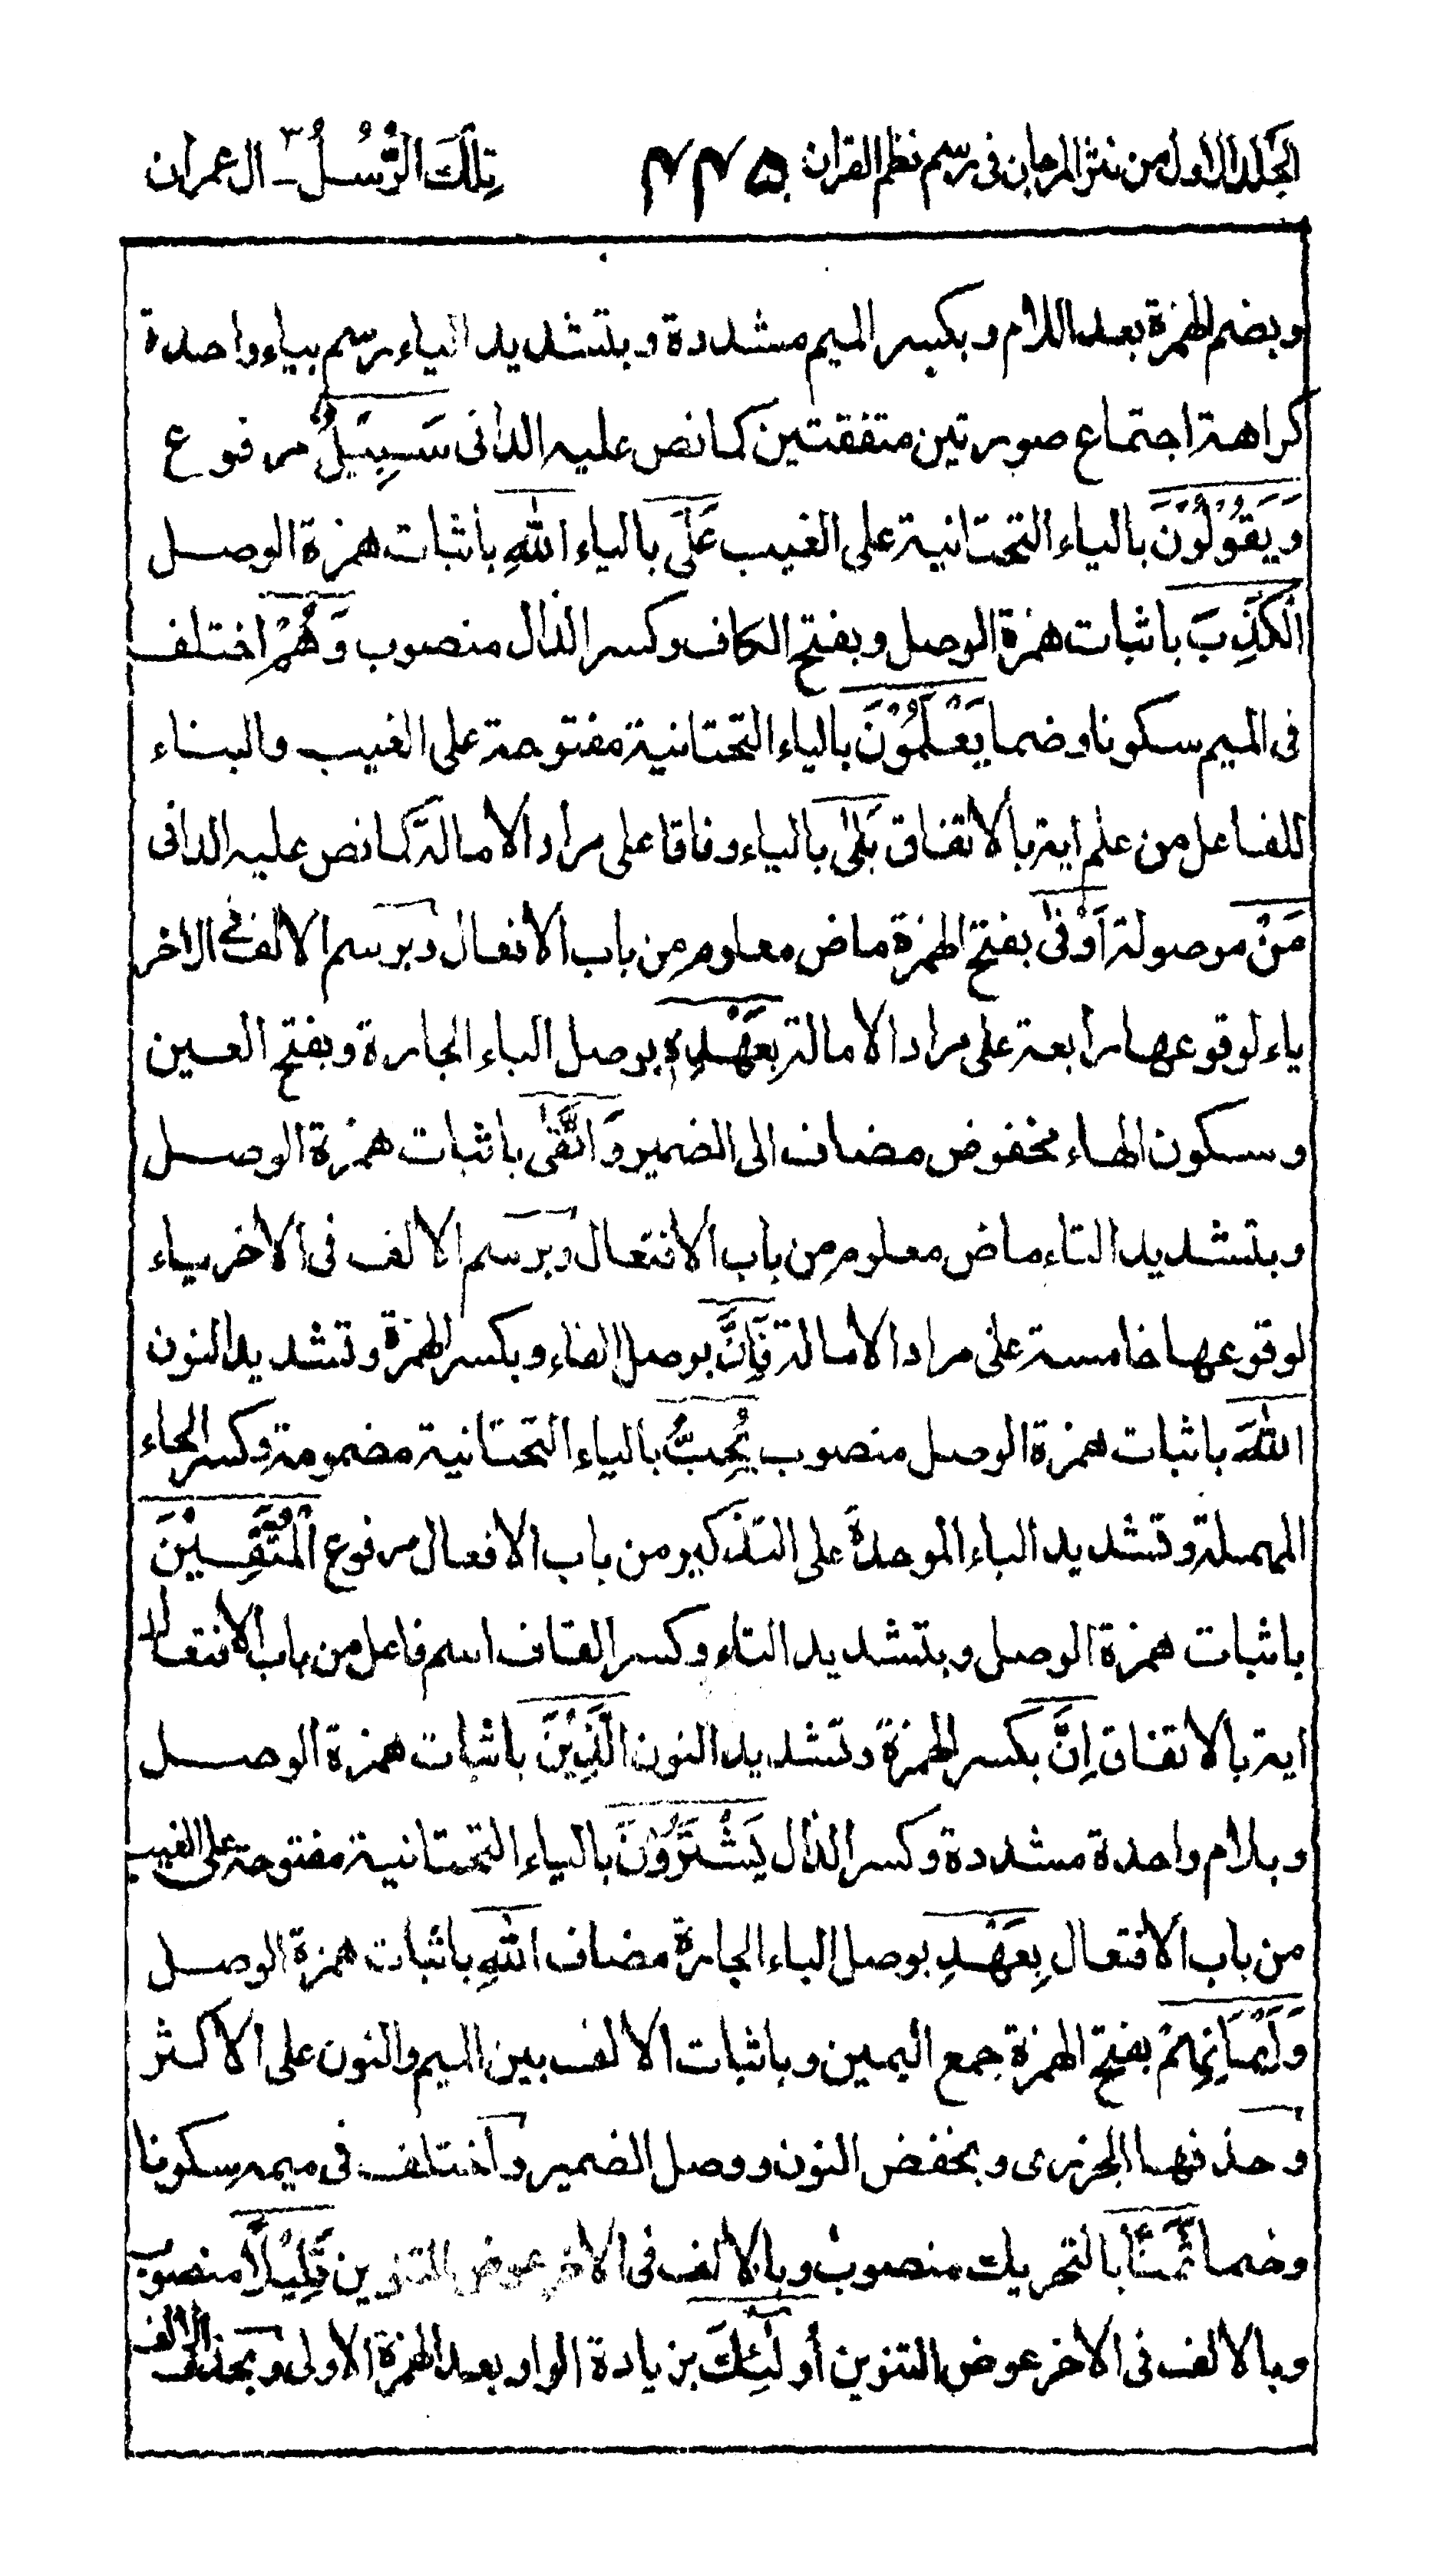 الجلد الاول من نثر المرجان فی رسم نظم القران ۴۴۵ تِلْكَ الرُّسُلُ ۳ ـ ال عمران
وبضم الهمزة بعد اللام وبكسر الميم مشددة وبتشديد الياء رسم بياء واحدة
كراهة اجتماع صورتين متفقتين كما نص عليه الدانی سَبِيْلٌ مرفوع
وَيَقُوْلُوْنَ بالياء التحتانية على الغيب عَلَى بالياء اللّٰهِ باثبات همزة الوصل
الْكَذِبَ باثبات همزة الوصل وبفتح الكاف وكسر الذال منصوب وَهُمْ اختلف
فی الميم سكونا وضما يَعْلَمُوْنَ بالياء التحتانية مفتوحة على الغيب والبناء
للفاعل من علم اية بالاتفاق بَلٰى بالياء وفاقا على مراد الامالة كما نص عليه الدانی
مَنْ موصولة اَوْفٰى بفتح الهمزة ماض معلوم من باب الافعال وبرسم الالف فی الاخر
ياء لوقوعها رابعة على مراد الامالة بِعَهْدِهٖ بوصل الباء الجارة وبفتح العين
وسكون الهاء مخفوض مضاف الى الضمير وَاتَّقٰى باثبات همزة الوصل
وبتشديد التاء ماض معلوم من باب الافتعال وبرسم الالف فی الاخر ياء
لوقوعها خامسة على مراد الامالة فَاِنَّ بوصل الفاء وبكسر الهمزة وتشديد النون
اللّٰهَ باثبات همزة الوصل منصوب يُحِبُّ بالياء التحتانية مضمومة وكسر الحاء
المهملة وتشديد الباء الموحدة على التذكير من باب الافعال مرفوع الْمُتَّقِيْنَ
باثبات همزة الوصل وبتشديد التاء وكسر القاف اسم فاعل من باب الافتعال
اية بالاتفاق اِنَّ بكسر الهمزة وتشديد النون الَّذِيْنَ باثبات همزة الوصل
وبلام واحدة مشددة وكسر الذال يَشْتَرُوْنَ بالياء التحتانية مفتوحة على الغيب
من باب الافتعال بِعَهْدِ بوصل الباء الجارة مضاف اللّٰهِ باثبات همزة الوصل
وَاَيْمَانِهِمْ بفتح الهمزة جمع اليمين وباثبات الالف بين الميم والنون على الاكثر
وحذفها الجزری وبخفض النون ووصل الضمير واختلف فی ميمه سكونا
وضما ثَمَنًا بالتحريك منصوب وبالالف فی الاخر عوض التنوين قَلِيْلًا منصوب
وبالالف فی الاخر عوض التنوين أُولٰٓئِكَ بزيادة الواو بعد الهمزة الاولى وبحذف الالف